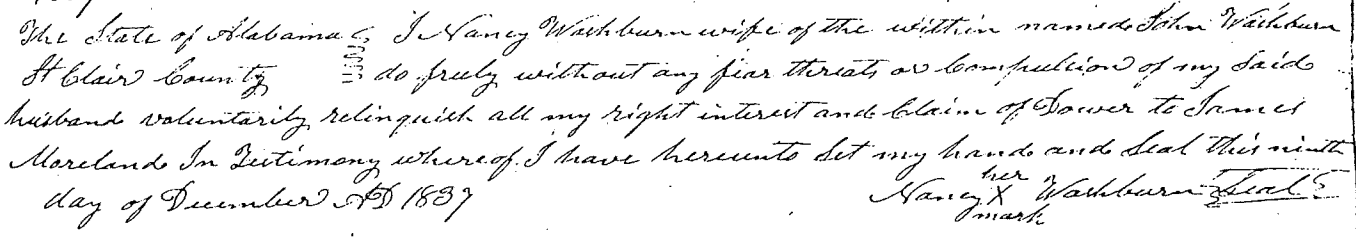 The State of Alabama I Nancy Washburn wife of the within named John Washburn
St Clair County do freely without any fear threats or Compulsion of my Said
husband voluntarily relinquish all my right interest and Claim of Dower to James
Moreland In Testimony whereof I have hereunto Set my hand and Seal this ninth
day of December AD 1837 Nancy her X mark Washburn Seal